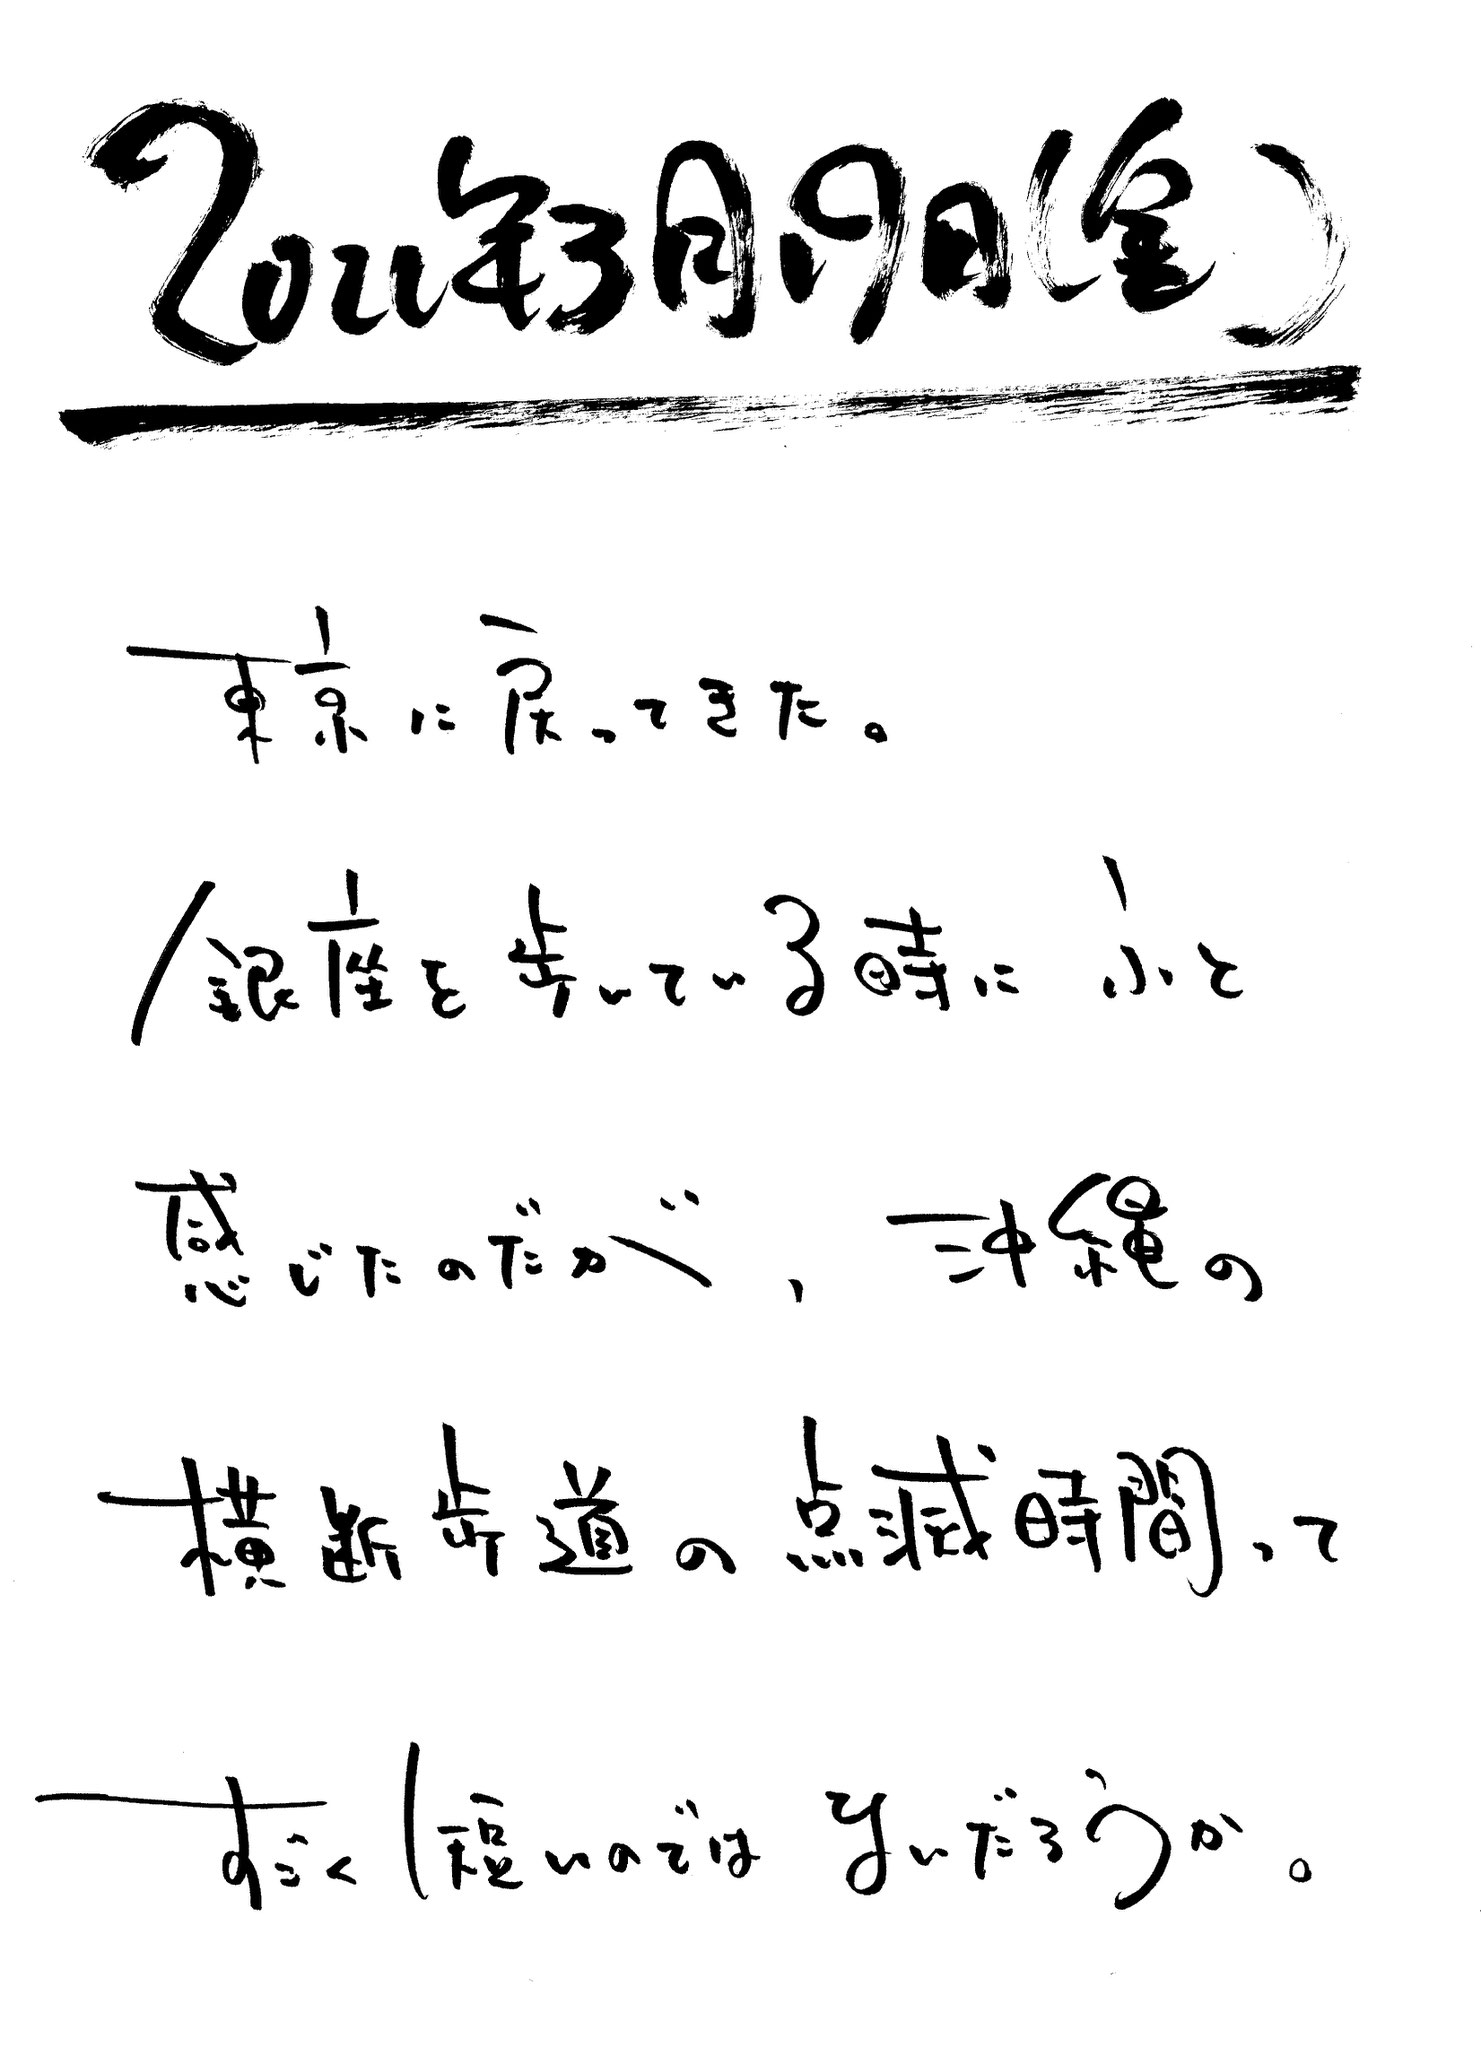 2021年3月19日(金)
東京に戻ってきた。
銀座を歩いている時にふと
感じたのだが、沖縄の
横断歩道の点滅時間って
すごく短いのではないだろうか。